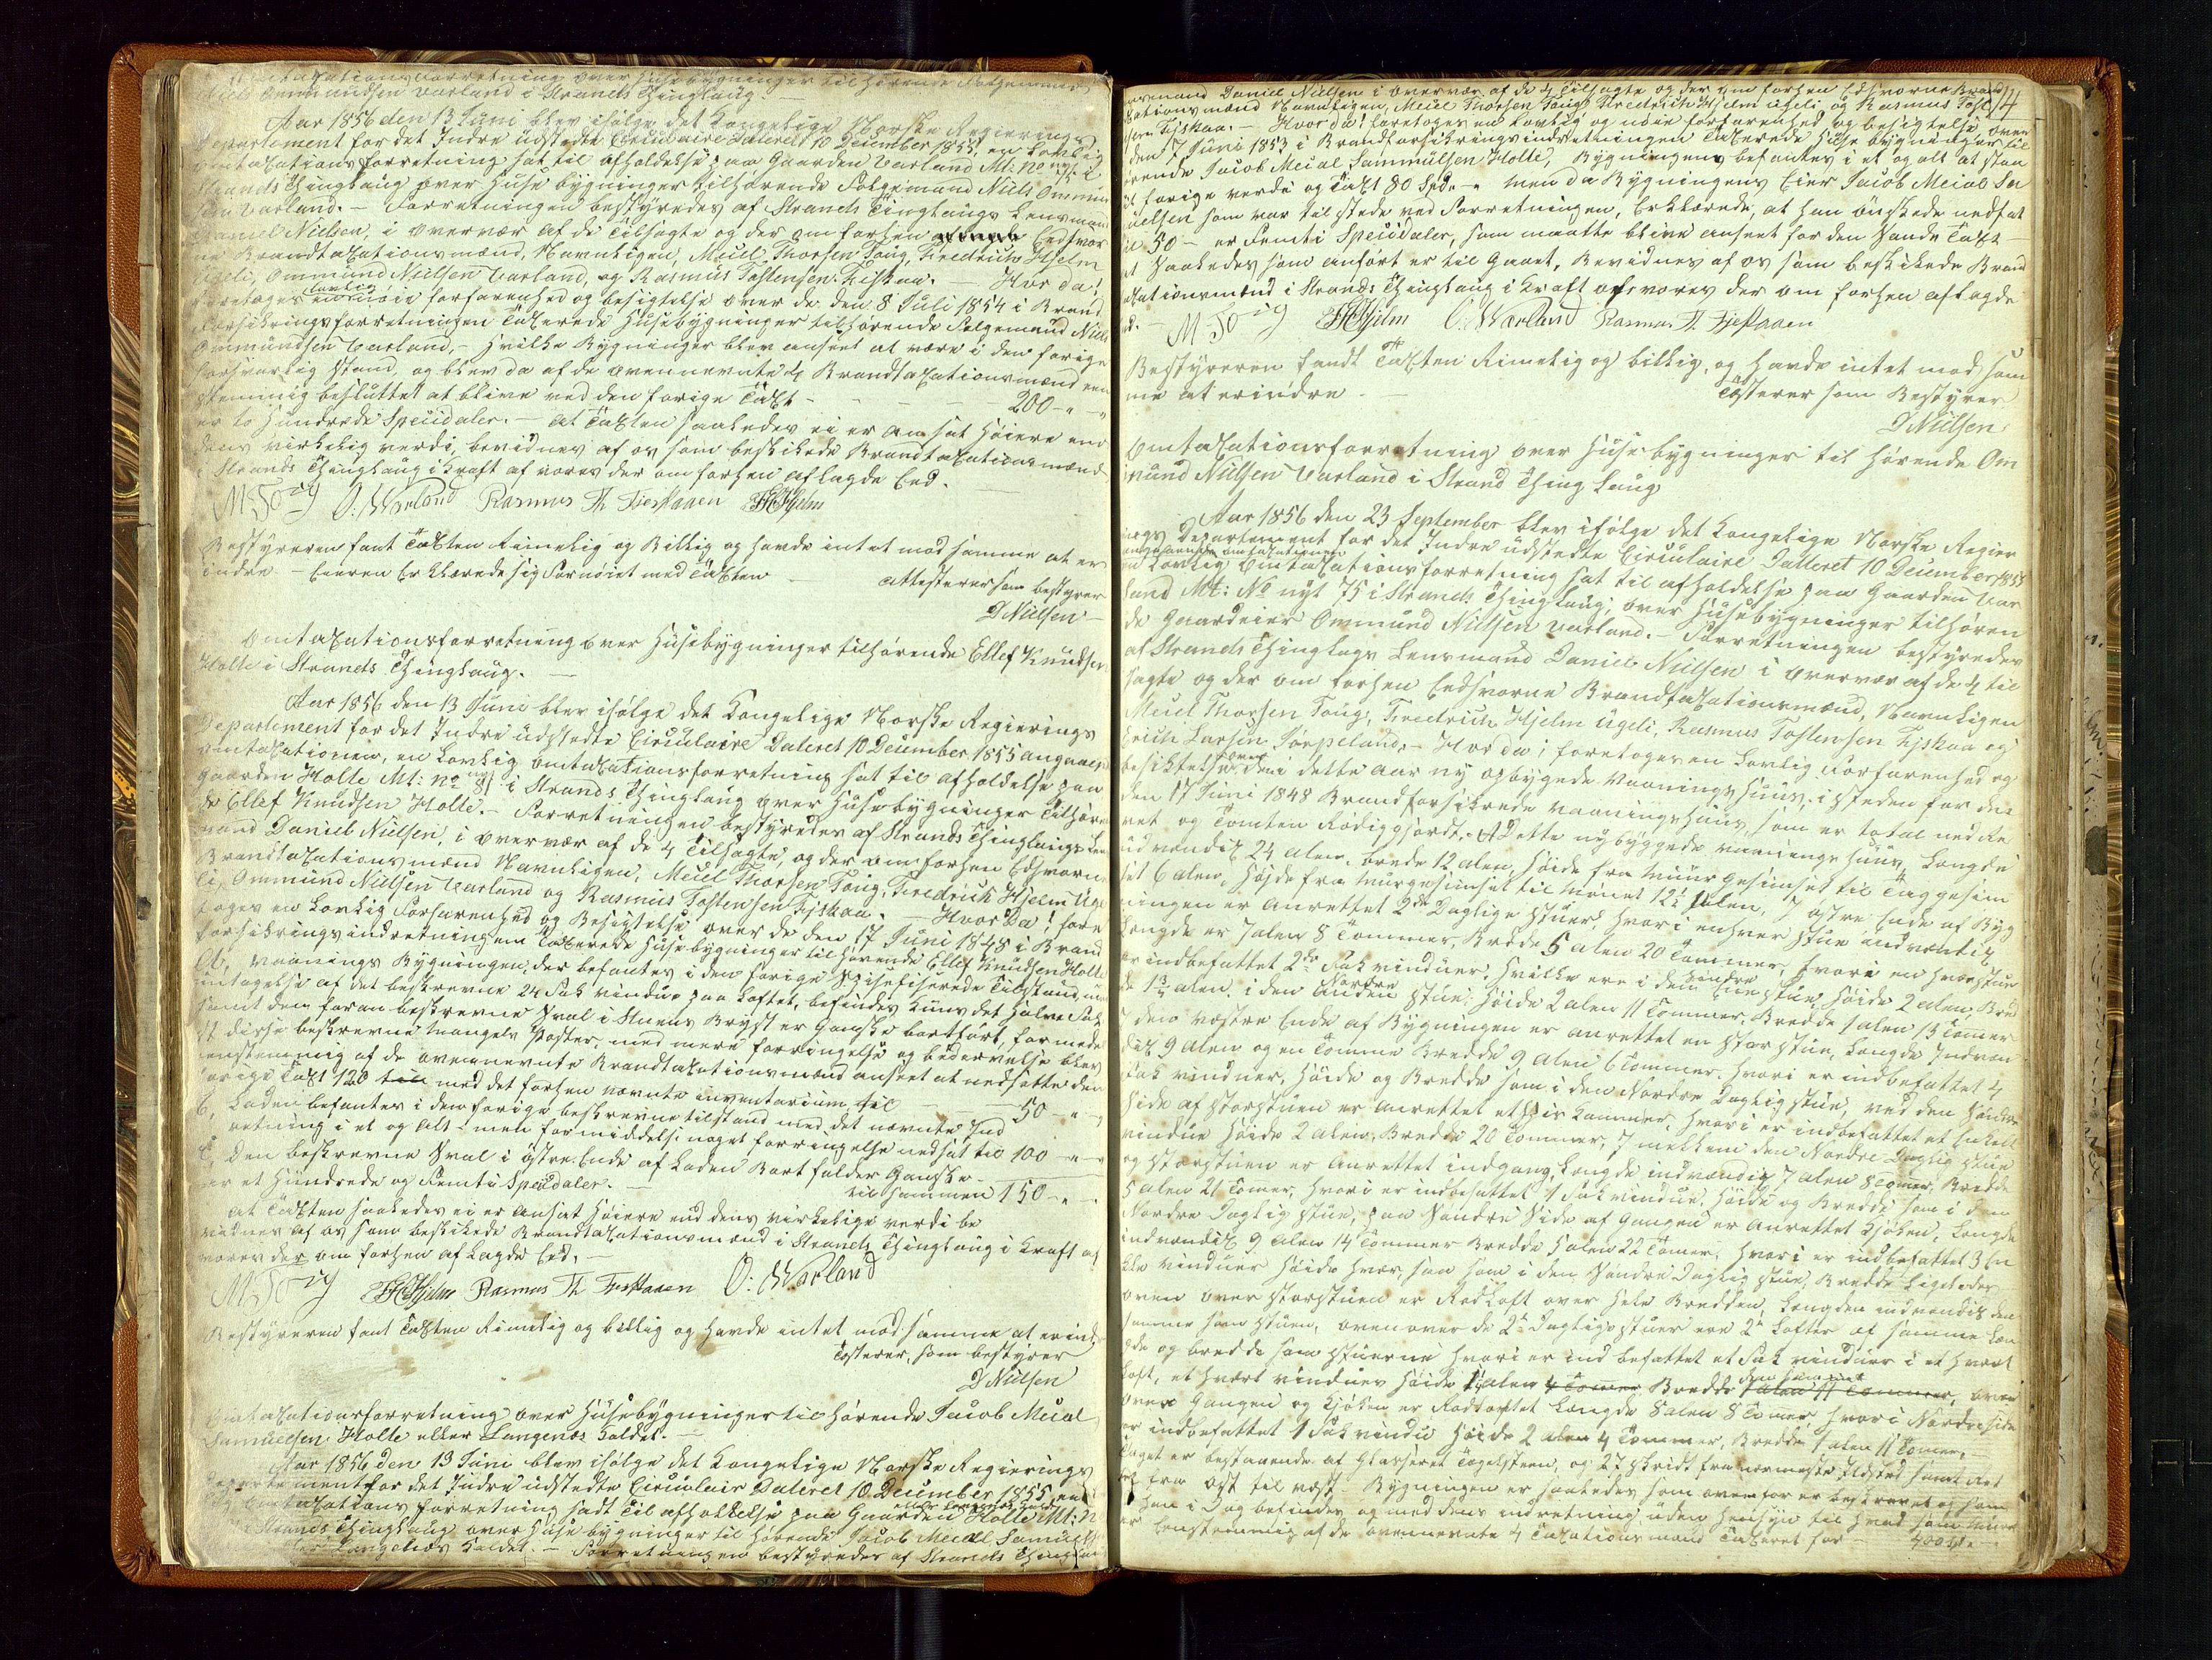 Omtaxationsforretning over Husebygninger tilhørende Følgemand
Niels Ommundsen Varland i Strands Thinglaug. —
Aar 1856 den 13 Juni blev ifølge det Kongelige Norske Regjerings
Departement for det Indre udstedte Circulaire Dateret 10 December 1855, en Lovlig
omtaxationsforretning sat til afholdelse paa Gaarden Varland Mt: No 75 i
Strands Thinglaug over Husebygninger tilhørende Følgemand Niels Ommun
sen Varland. — Forretningen bestyredes af Strands Tinglaugs Lensmand
Daniel Nielsen, i overvær af de tilsagte og der om forhen Edsvor
ne Brandtaxationsmænd, Navnligen, Meiel Thorsen Toug, Fredrich Hjelm
Ugeli, Ommund Nielsen Varland, og Rasmus Tostensen Fiskaa. — Hvor da!
foretages en lovlig nøie forfarenhed og besigtelse over de den 8 Juli 1854 i Brand
forsikringsforretningen Taxerede Husebygninger tilhørende Følgemand Niels
Ommundsen Varland. — Hvilke Bygninger blev anseet at være i den forige
forsvarlig stand, og blev da af de ovennevnte 4 Brandtaxationsmænd een
stemmig besluttet at blive ved den forige Taxt - - - - 200 - " - "
er to Hundrede Speciedaler. — At Taxten saaledes ei er ansat Høiere end
dens virkelig verdi, bevidnes af os som beskikede Brandtaxationsmænd
i Strands Thinglaug i Kraft af vores der om forhen aflagde Eed. —
M T Tou g O: Warland Rasmus Th Fieskaaen FHHjelm
Bestyreren fant Taxten Rimelig og Billig og havde intet mod samme at er
indre — Eieren Erklærede sig Fornøiet med Taxten —
attesterer som bestyrer
D Nielsen —
Omtaxationsforretning over Husebygninger tilhørende Ellef Knudsen
Holle i Strands Thinglaug. —
Aar 1856 den 13 Juni blev ifølge det Kongelige Norske Regjerings
Departement for det Indre udstedte Circulaire Dateret 10 December 1855 angaaen
omtaxationen, en Lovlig omtaxationsforretning sat til afholdelse paa
gaarden Holle Mt: No ny 81 i Strands Thinglaug over Husebygninger Tilhøren
de Ellef Knudsen Holle. — Forretningen bestyredes af Strands Thinglaugs Lens
mand Daniel Nielsen, i overvær af de 4 tilsagte og der om forhen Edsvorne
Brandtaxationsmænd Navnligen, Meiel Thorsen Toug, Fredrich Hjelm Uge
li, Ommund Nielsen Varland og Rasmus Tostensen Fiskaa. — Hvor Da! fore
toges en Lovlig Forfarenhed og Besigtelse over de den 17 Juni 1848 i Brand
forsikringsindretningen Taxerede Husebygninger tilhørende Ellef Knudsen Holle
A, vaanings Bygningen, der befantes i den forige Spisefiserede Tilstand, und
untagelse af det beskrevne 24 Fak vindue paa Loftet, befindes kuns det halve Fak
samt den foran beskrevne Sval i Stuens Bryst er ganske bortført, formede
lst disse beskrevne mangels Poster, med mere forringelse og bedervelse blev
eenstemmig af de ovennevnte Brandtaxationsmænd anseet at nedsette den
forige Taxt 120 med det forhen nævnte inventarium til - - - 50 - " - "
B, Laden befantes i den forige beskrevne tilstand med det nævnte Ind
retning i et og Alt - men formiddelst noget forringelse nedsat til 100 - " - "
C, Den beskrevne Sval i østre Ende af Laden Bortfalder Ganske —
er et Hundrede og Femti Speciedaler. — til sammen 150 - " - "
At Taxten saaledes ei er Ansat Høiere end dens virkelige verdi be
vidnes af os som beskikede Brandtaxationsmænd i Strands Thinglaug i Kraft af
vores der om forhen aflagde Eed. —
M T Tou g FHHjelm Rasmus Th Fieskaaen O: Warland
Bestyreren fant Taxten Rimelig og billig og havde intet mod samme at erind
Testerer, som bestyrer
D Nielsen
Omtaxationsforretning over Husebygninger til hørende Jacob Meiel
Samuelsen Holle eller Langenes kaldet. —
Aar 1856 den 13 Juni blev ifølge det Kongelige Norske Regjerings
Departement for det Indre udstedte Circulair Dateret 10 December 1855, en
Omtaxations forretning sadt Til afholdelse paa Gaarden Holle eller Langenes kaldet Mt: N
Strands Thinglaug over Husebygninger til hørende Jacob Meiel Samuels
Langenes Kaldet. — Forretningen bestyredes af Strands Thinglau
14
ensmand Daniel Nielsen i overvær af de 4 Tilsagte og der om forhen Edsvorne Brand
xationsmænd Navnligen, Meiel Thorsen Toug, Fredrich Hjelm Ugeli og Rasmus Tost
sen Fiskaa. — Hvor da! foretoges en Lovlig og nøie forfarenhed og besigtelse over
den 17 Juni 1853 i Brandforsikringsindretningen Taxerede Husebygninger til
hørende Jacob Meiel Sammuelsen Holle, Bygningens befantes i et og alt at staa
i forige verdi og Taxt 80 Spd. - " Men da Bygningens Eier Jacob Meiel Sa
muelsen som var til stede ved Forretningen, Erklærede, at han ønskede nedsat
til 50 - er Femti Speciedaler, som maatte blive anseet for den Sande Taxt —
At saaledes som anført er til Gaaet, Bevidnes af os som beskikede Brand
taxationsmænd i Strands Thinglaug i Kraft af vores der om forhen aflagde
Ed. —
M T Tou g FHHjelm O: Warland Rasmus Th Fieskaaen
Bestyreren fandt Taxten Rimelig og billig, og havde intet mod sam
me at erindre —
Testerer som Bestyrer
D Nielsen
Omtaxationsforretning over Husebygninger til hørende Om
mund Nielsen Varland i Strand Thinglaug
Aar 1856 den 23 September blev ifølge det Kongelige Norske Regier
ings Departement for det Indre udstedte Circulaire Datteret 10 December 1855
angaaende omtaxationen
en Lovlig Omtaxationsforretning sat til afholdelse paa Gaarden Var
land Mt: No nyt 75 i Strands Thinglaug; over Husebygninger tilhøren
de Gaardeier Ommund Nielsen Varland. — Forretningen bestyredes
af Strands Thinglags Lensmand Daniel Nielsen i overvær af de 4 til
sagte og der om forhen Eedsvorne Brandtaxationsmænd, Navnligen
Meiel Thorsen Toug, Fredrich Hjelm Ugeli, Rasmus Tostensen Fiskaa og
Erich Larsen Jørpeland, — Hvor da; foretoges en Lovlig Forfarenhed og
besiktelse over den i dette Aar ny opbygede Vaaningshuus, i steden for den
den 17 Juni 1848 Brandforsikrede vaaningshuus, som er total ned Re
vet og Tomten Rødiggjordt. A Dette nybyggede vaaningshuus, Længde
udvendig 24 alen, Brede 12 alen, Høide fra Muurgesimset til Taggesim
set 6 alen, Højde fra Murgesimset til Mønet 12½ Alen, I østre Ende af Byg
ningen er Anrettet 2de Daglige Stuer, hvori i enhver stue indvendig
Længde er 7 alen 8 Tommer, Bredde 5 alen 20 Tommer, hvori en hver Stue
er indbefattet 2de Fak vinduer, hvilke ere i den Søndre stue, Høide 2 alen, Bred
de 1¾ alen i den Nordre stue, Høide 2 alen 11 Tommer, Bredde 1 alen 13 Tomer
I dens vestre Ende af Bygningen er anrettet en storstue, Længde Indven
dig 9 alen og en Tomme Bredde 9 alen 6 Tommer. hvori er indbefattet 4
Fak vinduer, Høide og Bredde som i den Nordre Daglig stue, ved den Søndre
Side af storstuen er Anrettet et Spis Kammer, hvori er indbefattet et Enkelt
vindue Høide 2 alen, Bredde 20 Tommer, I mellem den Nordre Daglig Stue
og storstuen er Anrettet indgang, Længde indvendig 7 alen 8 Tomer, Bredde
5 alen 21 Tomer, hvori er indbefattet 1 Fak vindue, Høide og Bredde som i den
Nordre Daglig stue, paa Søndre Side af Gangen er Anrettet Kjøken, Længde
indvendig 9 Alen 14 Tommer Bredde 5 alen 22 Tomer, hvori er indbefattet 3 En
kle vinduer Høide hver, saa som i den Søndre Daglig stue Bredde ligeledes
oven over storstuen er Rodloft over hele Bredden, Længden indvendig den
samme som stuen, oven over de 2de Daglige stuer ere 2de Lofter af samme Læn
gde og bredde som stuerne hvori er indbefattet et Fak vinduer i et hvert
Loft, et hvert vindues Høide 1 alen 4 Tomer Bredde 1 alen 11 Tommer, oven
over Gangen og Kjøken er Rodloftet Længde 8 alen 8 Tomer hvori Nordre side
er indbefattet 1 Fak vindue Høide 2 alen 4 Tommer, Bredde 1 alen 11 Tomer,
Taget er bestaaende af Glasseret Tagelsteen, og 27 skridt fra nærmeste Ildsted samt Ret
ning fra øst til vest — Bygningen er saaledes som ovenfor er beskrevet og som
den i dag befindes og med dens indretning uden hensyn til hvad som mued
er Eenstemmig af de ovennevnte 4 Taxationsmænd Taxeret for — 400 Spd. —